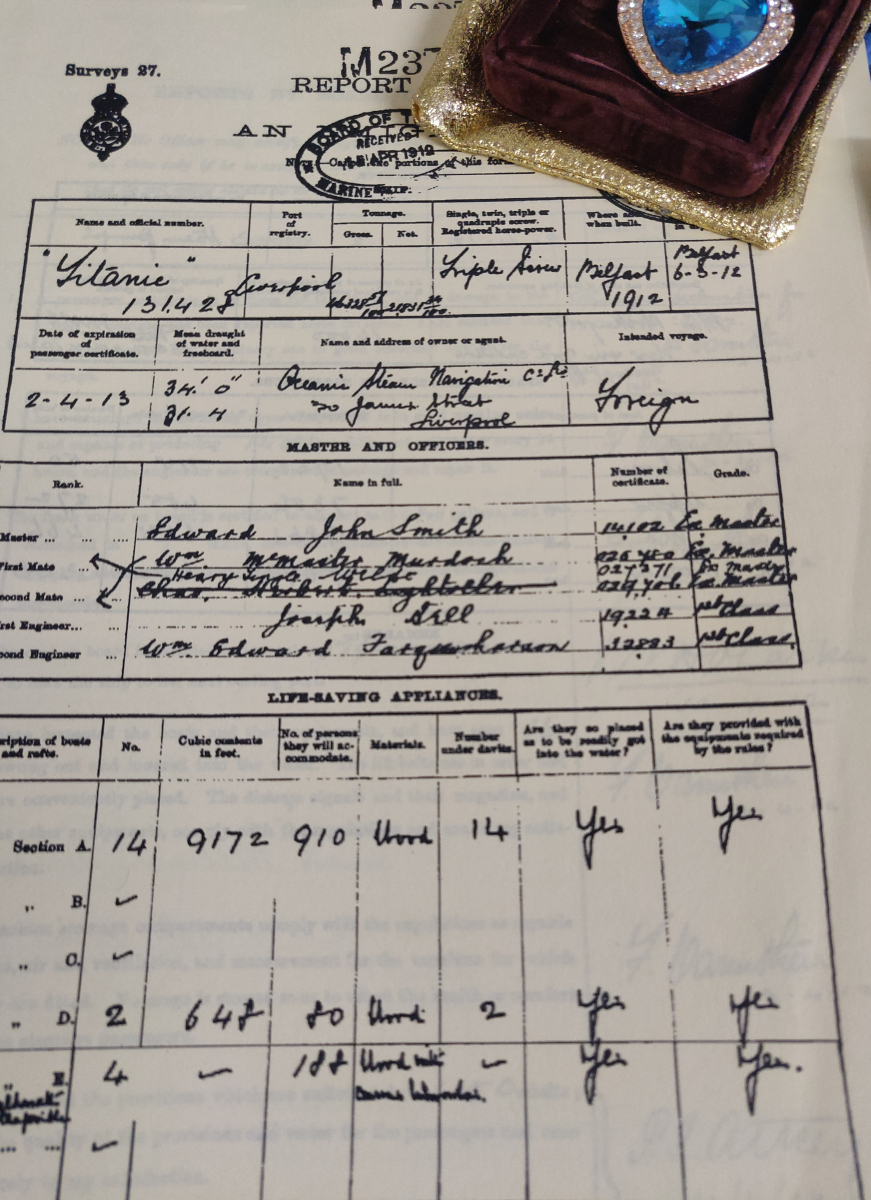 Surveys 27.
M237
REPORT
AN
BOARD OF T
RECEIVED
APR 1912
MARINE
portions of this for
Name and official number.
Port of registry.
Tonnage.
Gross. Net.
Single, twin, triple or quadruple screw. Registered horse-power.
Where and when built.
"Titanic"
131428
Liverpool
Triple Screw
Belfast
1912
Belfast
6-3-12
Date of expiration of passenger certificate.
Mean draught of water and freeboard.
Name and address of owner or agent.
Intended voyage.
2-4-13
34' 0"
31. 4
Oceanic Steam Navigation Co Ltd
30 James Street
Liverpool
Foreign
MASTER AND OFFICERS.
Rank. Name in full. Number of certificate. Grade.
Master ... Edward John Smith 14102 Ex Master
First Mate ... Wm. McMaster Murdoch 025780 Ex. Master
Henry Tingle Wilde 027371 Ex Master
ond Mate ... Chas. Herbert Lightoller 029706 Ex. Master
rst Engineer... Joseph Bell 19224 1st Class
ond Engineer Wm Edward Farquharson 32883 1st Class,
LIFE-SAVING APPLIANCES.
ription of boats and rafts.
No.
Cubic contents in feet.
No. of persons they will accommodate.
Materials.
Number under davits.
Are they so placed as to be readily got into the water?
Are they provided with the equipments required by the rules?
Section A. 14 9172 910 Wood 14 Yes Yes
„ B. ✓
„ C. ✓
„ D. 2 648 80 Wood 2 Yes Yes
„ E. 4 ✓ 188 Wood with ✓ Yes Yes.